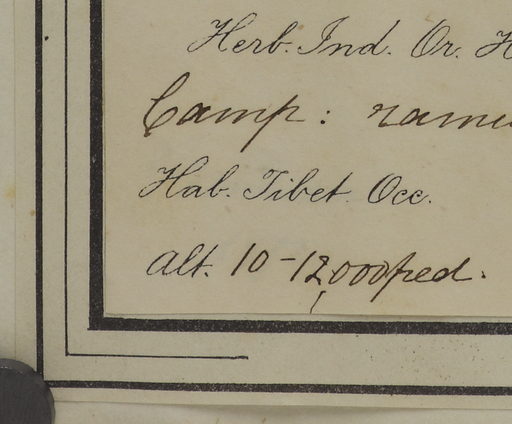 Herb. Ind. Or. H
Camp: ramu
Hab. Tibet. Occ.
Alt. 10-12,000 ped.